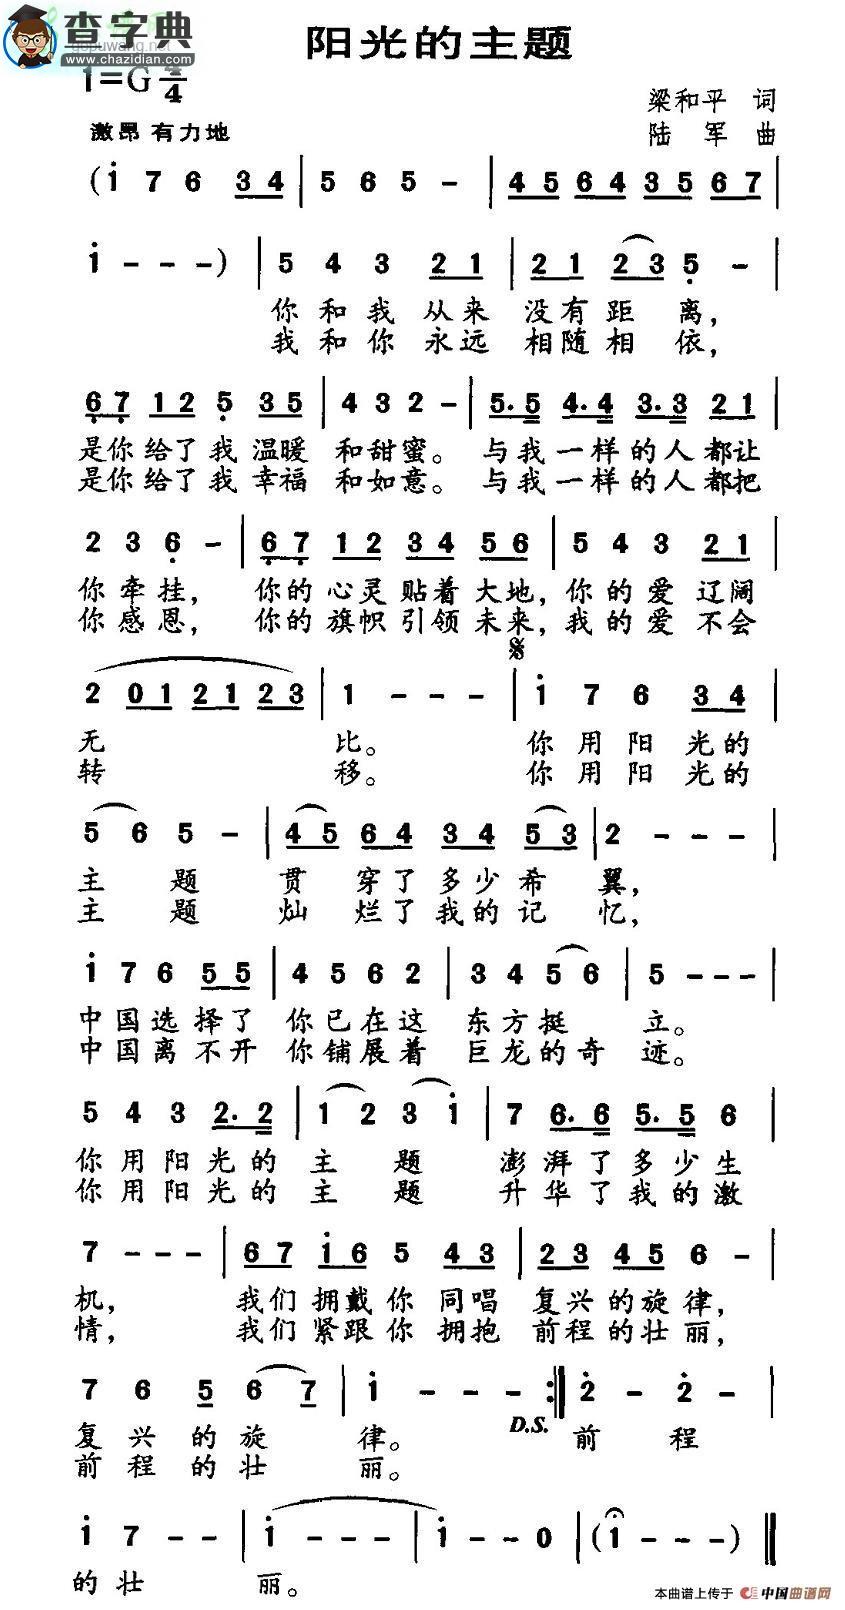 查字典
www.chazidian.com
阳光的主题
1=G 4/4
梁和平 词
激昂 有力地
陆 军 曲
(i 7 6 3 4 | 5 6 5 - | 4 5 6 4 3 5 6 7 |
i - - - ) | 5 4 3 2 1 | 2 1 2 3 5 - |
你 和 我 从 来 没 有 距 离,
我 和 你 永 远 相 随 相 依,
6 7 1 2 5 3 5 | 4 3 2 - | 5. 5 4. 4 3. 3 2 1 |
是你 给了 我 温暖 和 甜 蜜。 与 我 一 样 的 人 都 让
是你 给了 我 幸福 和 如 意。 与 我 一 样 的 人 都 把
2 3 6 - | 6 7 1 2 3 4 5 6 | 5 4 3 2 1 |
你 牵 挂, 你的 心灵 贴着 大地, 你 的 爱 辽阔
你 感 恩, 你的 旗帜 引领 未来, 我 的 爱 不会
2 0 1 2 1 2 3 | 1 - - - | i 7 6 3 4 |
无 比。 你 用 阳 光的
转 移。 你 用 阳 光的
5 6 5 - | 4 5 6 4 3 4 5 3 | 2 - - - |
主 题 贯 穿了 多少 希 翼,
主 题 灿 烂了 我的 记 忆,
i 7 6 5 5 | 4 5 6 2 | 3 4 5 6 | 5 - - - |
中 国 选 择了 你 已 在 这 东 方 挺 立。
中 国 离 不开 你 铺 展 着 巨 龙 的 奇 迹。
5 4 3 2. 2 | 1 2 3 i | 7 6. 6 5. 5 6 |
你 用 阳 光 的 主 题 澎 湃 了 多 少 生
你 用 阳 光 的 主 题 升 华 了 我 的 激
7 - - - | 6 7 i 6 5 4 3 | 2 3 4 5 6 - |
机, 我们 拥戴 你 同唱 复兴 的旋 律,
情, 我们 紧跟 你 拥抱 前程 的壮 丽,
7 6 5 6 7 | i - - - :| 2 - 2 - |
D.S.
复 兴 的 旋 律。 前 程
前 程 的 壮 丽。
i 7 - - | i - - - | i - - 0 | (i - - - ) ||
的 壮 丽。
本曲谱上传于 中国曲谱网